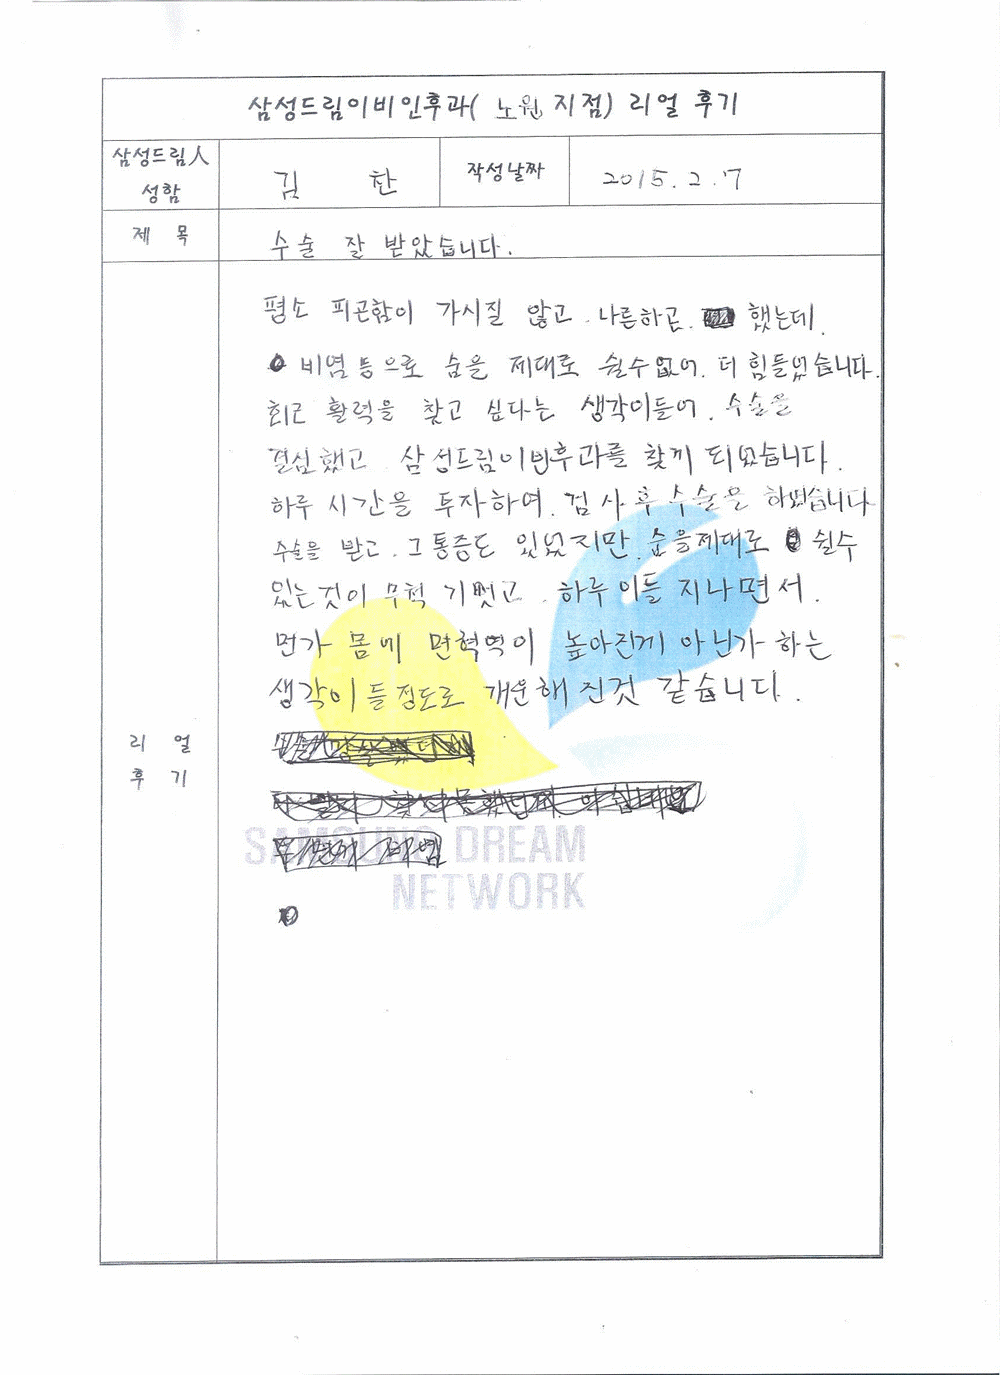 삼성드림이비인후과( 노원 지점) 리얼 후기
삼성드림人
성함
김 찬
작성날짜
2015. 2. 7
제 목
수술 잘 받았습니다.
평소 피곤함이 가시질 않고. 나른하곤. 했는데.
비염등으로 숨을 제대로 쉴수없어. 더 힘들었습니다.
최근 활력을 찾고 싶다는 생각이들어. 수술을
결심했고. 삼성드림이빈후과를 찾게 되었습니다.
하루 시간을 투자하여. 검사후 수술을 하였습니다
수술을 받고. 그 통증도 있었지만. 숨을제대로 쉴수
있는것이 무척 기뻤고. 하루 이틀 지나면서.
먼가 몸에 면혁역이 높아진게 아닌가 하는
생각이 들정도로 개운해 진것 같습니다.
리 얼
후 기
SAMSUNG DREAM
NETWORK